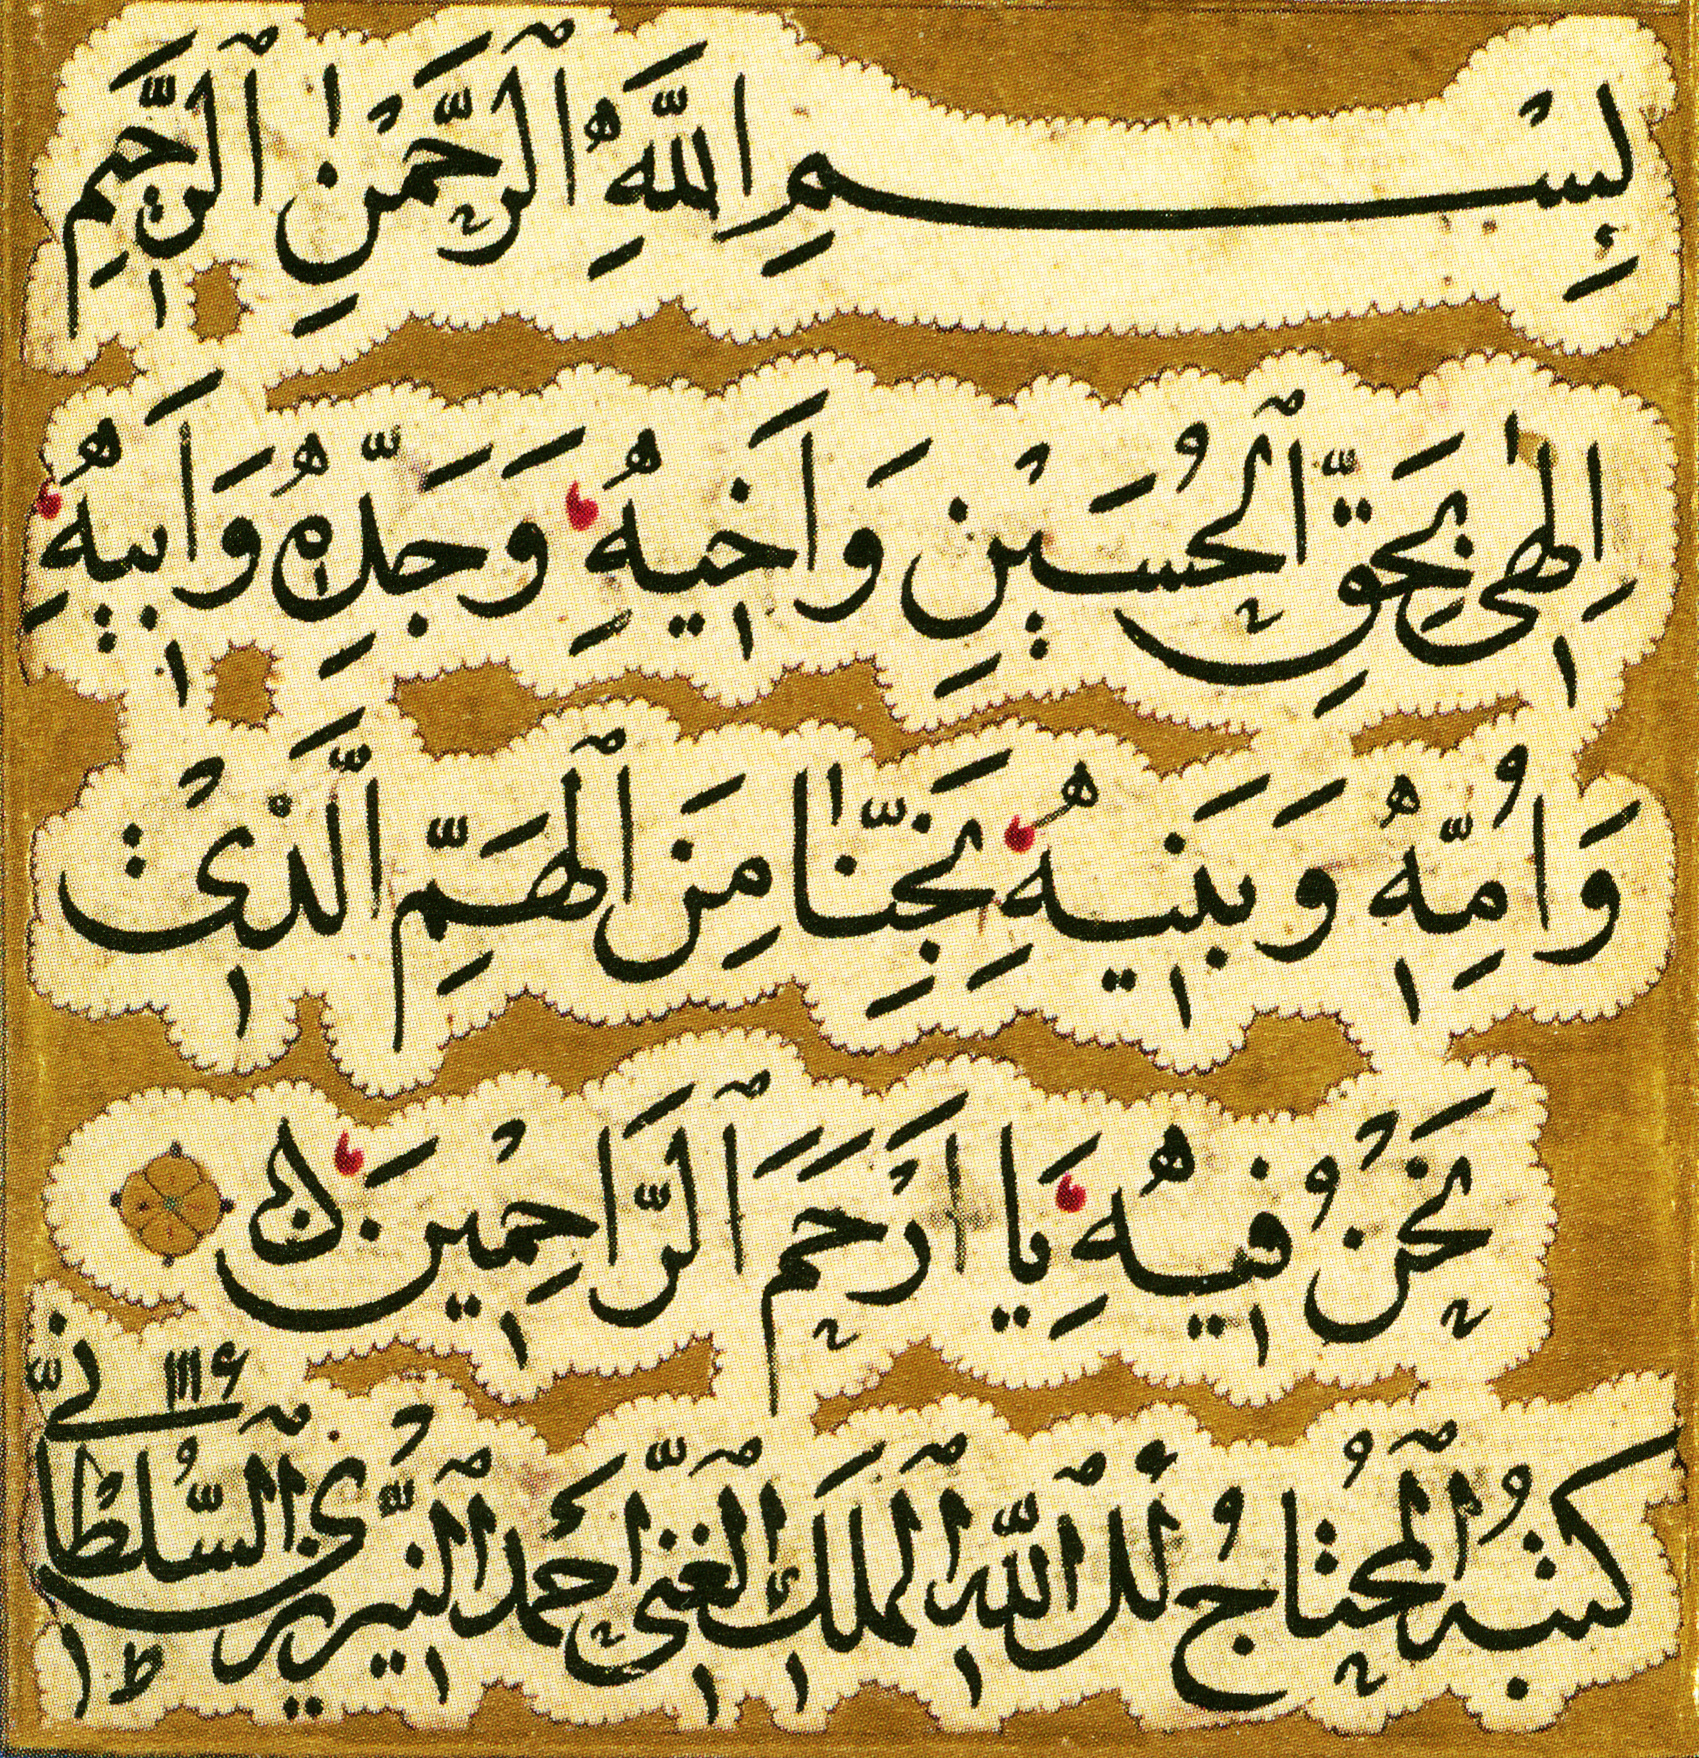 بِسْمِ اللَّهِ الرَّحْمٰنِ الرَّحِيمِ
اِلٰهِى بِحَقِّ الْحُسَيْنِ وَاَخِيهِ وَجَدِّهِ وَاَبِيهِ
وَاُمِّهِ وَبَنِيهِ نَجِّنَا مِنَ الْهَمِّ الَّذِىْ
نَحْنُ فِيهِ يَا اَرْحَمَ الرَّاحِمِينَ
كتبه المحتاج الى الله الملك الغنى احمد النيريزى السلطانى
۱۱۱۶